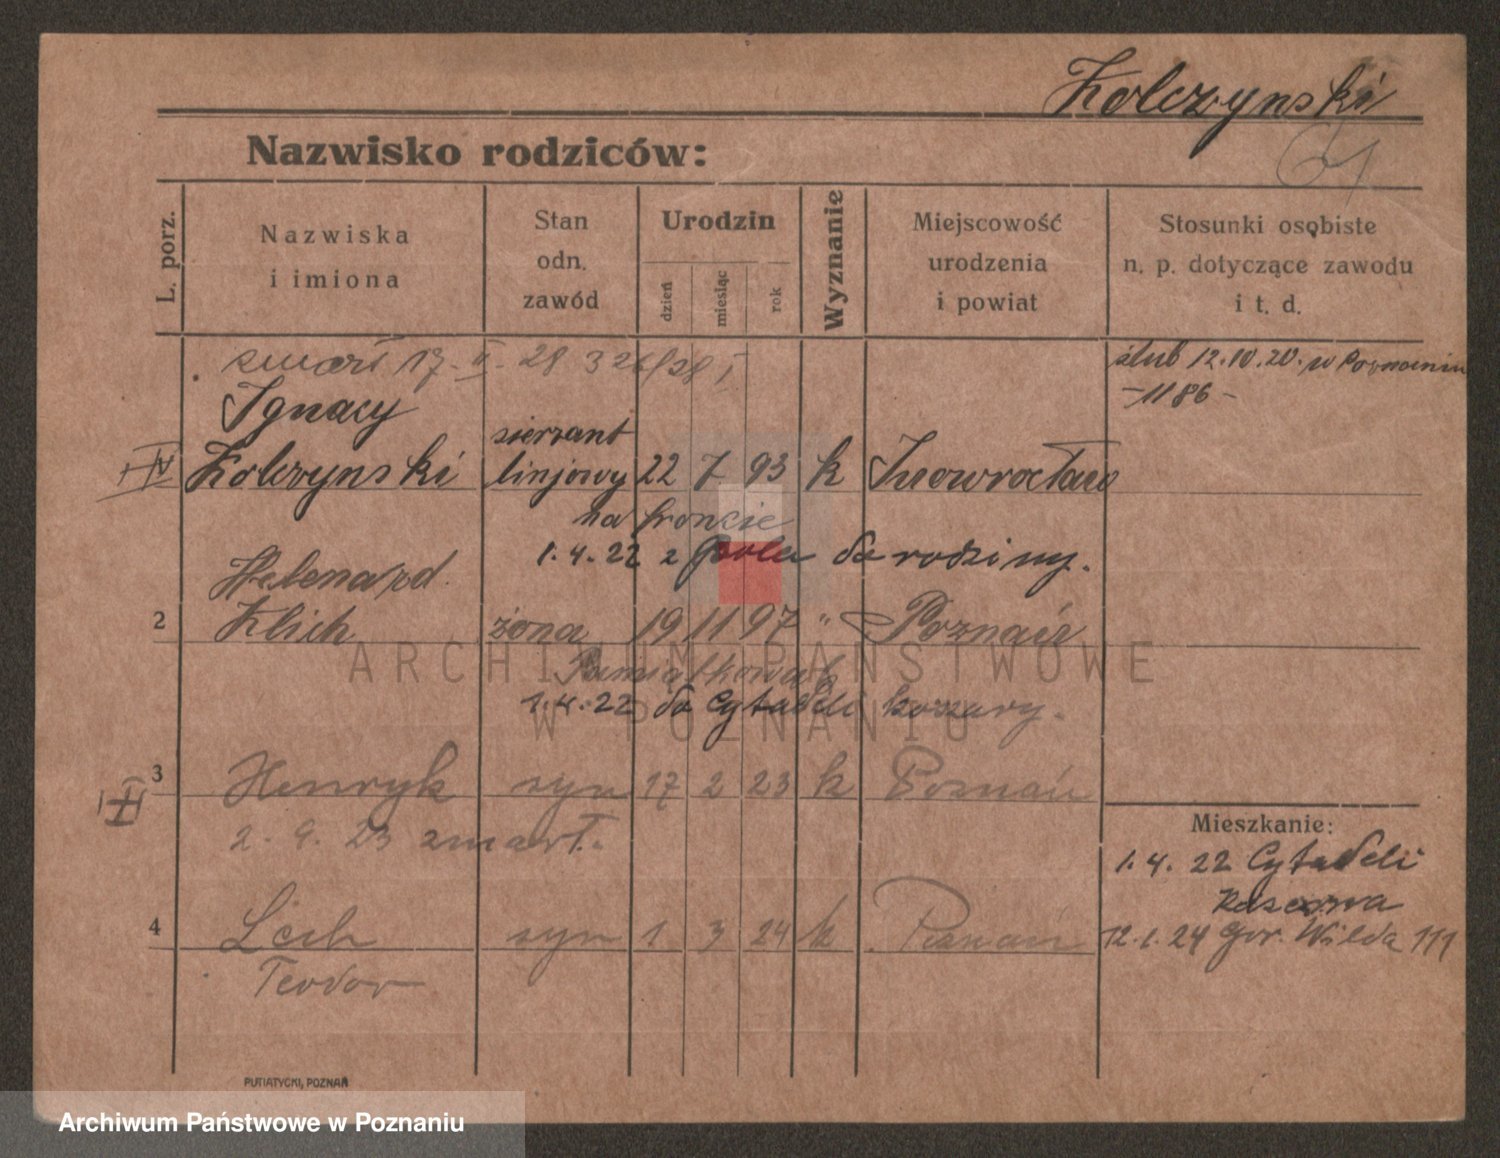 Kolczynski
Nazwisko rodziców:
L. porz.
Nazwiska
i imiona
Stan
odn.
zawód
Urodzin
dzień
miesiąc
rok
Wyznanie
Miejscowość
urodzenia
i powiat
Stosunki osobiste
n. p. dotyczące zawodu
i t. d.
zmarł 17. II. 28 326/28 I
ślub 12.10.20. w Poznaniu
- 1186 -
Ignacy
Kolczynski sierzant linjowy 22 7 93 k Inowrocław
na froncie
1.4.22 z Pola do rodziny.
Helena rd.
2 Klich żona 19 11 97 " Poznań
1.4.22 do Cytadeli koszary.
3 Henryk syn 17 2 23 k Poznań
2. 9. 23 zmarł.
Mieszkanie:
1.4.22 Cytadeli
4 Lech syn 1 3 24 k Poznań
Teodor
12.1.24 Gór. Wilda 111
PUTIATYCKI, POZNAŃ
ARCHIWUM PAŃSTWOWE
W POZNANIU
Archiwum Państwowe w Poznaniu